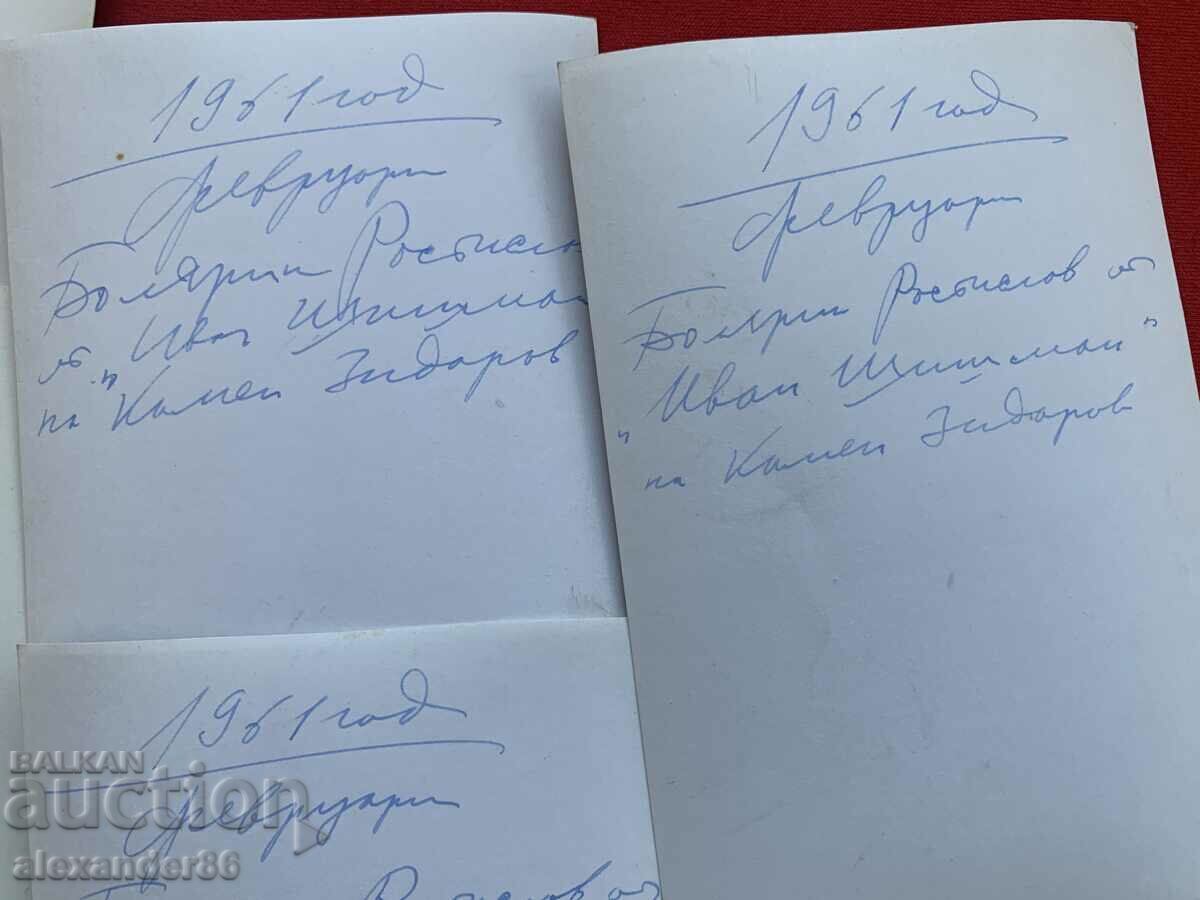 1961 год
февруари
Болярин Ростисло
от „Иван Шишман
на Камен Зидаров
1961 год
февруари
Болярин Ростислов от
„Иван Шишман"
на Камен Зидаров
1961 год
февруари
Ростислов от
BALKAN
auction
alexander86